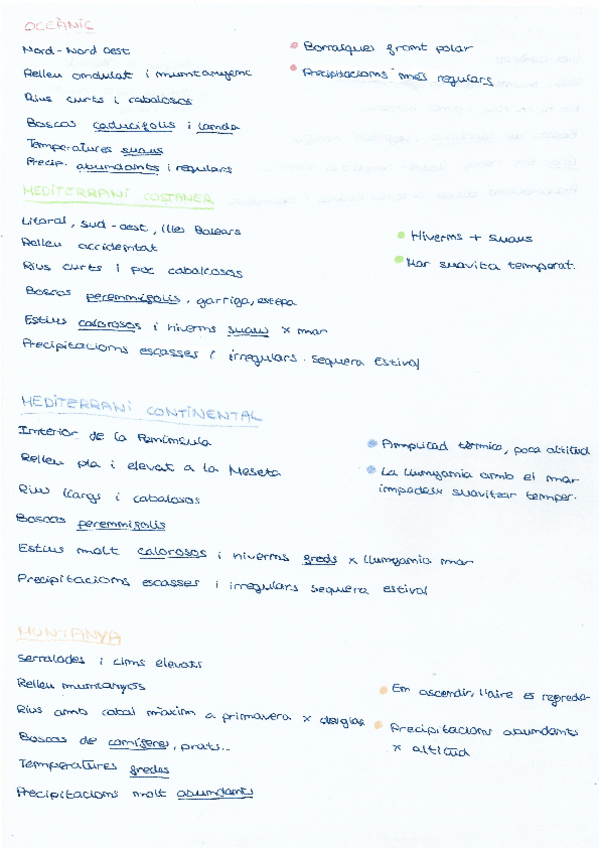 OCEÀNIC
Nord-Nord Oest
Relleu ondulat i muntanyenc
Rius curts i cabalosos
Boscos caducifolis i landa
Temperatures suaus
Precip. abundants i regulars
• Borrasques front polar
• Precipitacions més regulars
MEDITERRANI COSTANER
Litoral, sud-oest, Illes Balears
Relleu accidentat
Rius curts i poc cabalosos
Boscos perennifolis, garriga, estepa
Estius calorosos i hiverns suaus x mar
Precipitacions escasses i irregulars. Sequera estival
• Hiverns + suaus
• Mar suavitza temperat.
MEDITERRANI CONTINENTAL
Interior de la Península
Relleu pla i elevat a la Meseta
Rius llargs i cabalosos
Boscos perennifolis
Estius molt calorosos i hiverns freds x llunyania mar
Precipitacions escasses i irregulars sequera estival
• Amplitud tèrmica, poca altitud
• La llunyania amb el mar
impedeix suavitzar temper.
MUNTANYA
Serralades i cims elevats
Relleu muntanyós
Rius amb cabal màxim a primavera x desglaç
Boscos de coníferes, prats...
Temperatures fredes
Precipitacions molt abundants
• En ascendir, l'aire es refreda
• Precipitacions abundants
x altitud